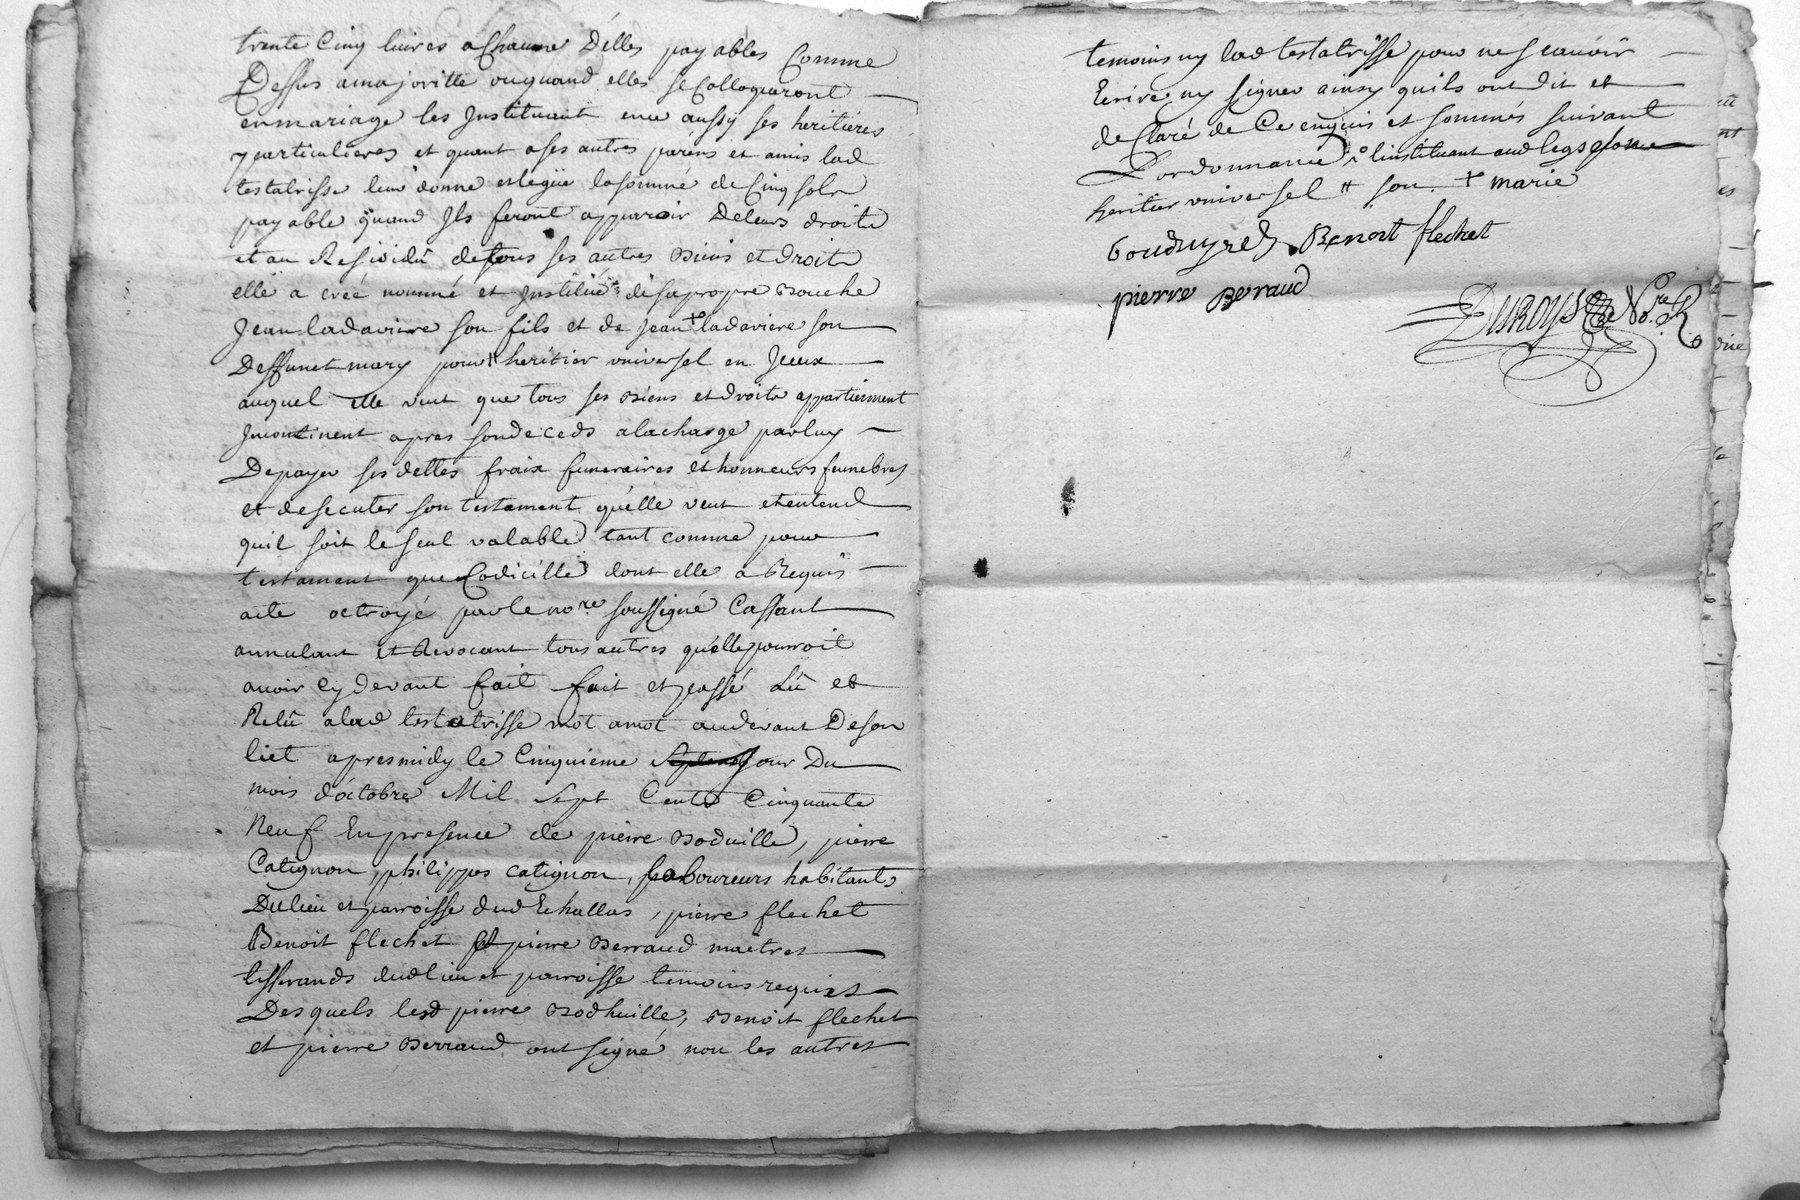 trente Cinq livres a Chacune D'elles payables Comme
Dessus a majoritté ou quand elles se Colloqueront
en mariage les Instituant en ce aussy ses heritieres
particulieres et quant a ses autres parens et amis lad
testatrisse leur donne et legüe la somme de Cinq sols
payable quand Ils feront apparoir De leurs droits
et au Residû de tous ses autres Biens et Droits
elle a creé nommé et Institué de sa propre Bouche
Jean ladaviere son fils et de Jean ladaviere son
Deffunct mary pour heritier universel en Iceux
auquel elle veut que tous ses Biens et droits appartiennent
Incontinent apres son deceds a la charge par luy
De payer ses dettes fraix funeraires et honneurs funebres
et desecuter son testament qu'elle veut et entend
quil soit le seul valable tant comme pour
testament que Codicille dont elle a Requis
acte octroyé par le no.re soussigné Cassant
annulant et Revocant tous autres qu'elle pourroit
avoir cy devant fait fait et passé Lû et
Relû a lad testatrisse mot a mot au devant De son
liet apres midy le Cinquieme Jour Du
mois d'octobre Mil Sept Cents Cinquante
Neuf En presence de pierre Boduille, pierre
Catignon, philippes catignon, Laboureurs habitants
Du lieu et parroisse dud Echallas, pierre flechet
Benoit flechet et pierre Berraud maitres
tisserands dud lieu et parroisse temoins requis
Des quels lesd pierre Bodhuille, Benoit flechet
et pierre Berraud ont signé, non les autres
temoins ny lad testatrisse pour ne scavoir
Ecrire ny signer ainsy quils ont dit et
de Claré de Ce enquis et sommés suivant
L'ordonnance l'instituant aud legs
heritier universel # son. + marie
Benoit flechet
pierre Beraud
DUROYS No.re R